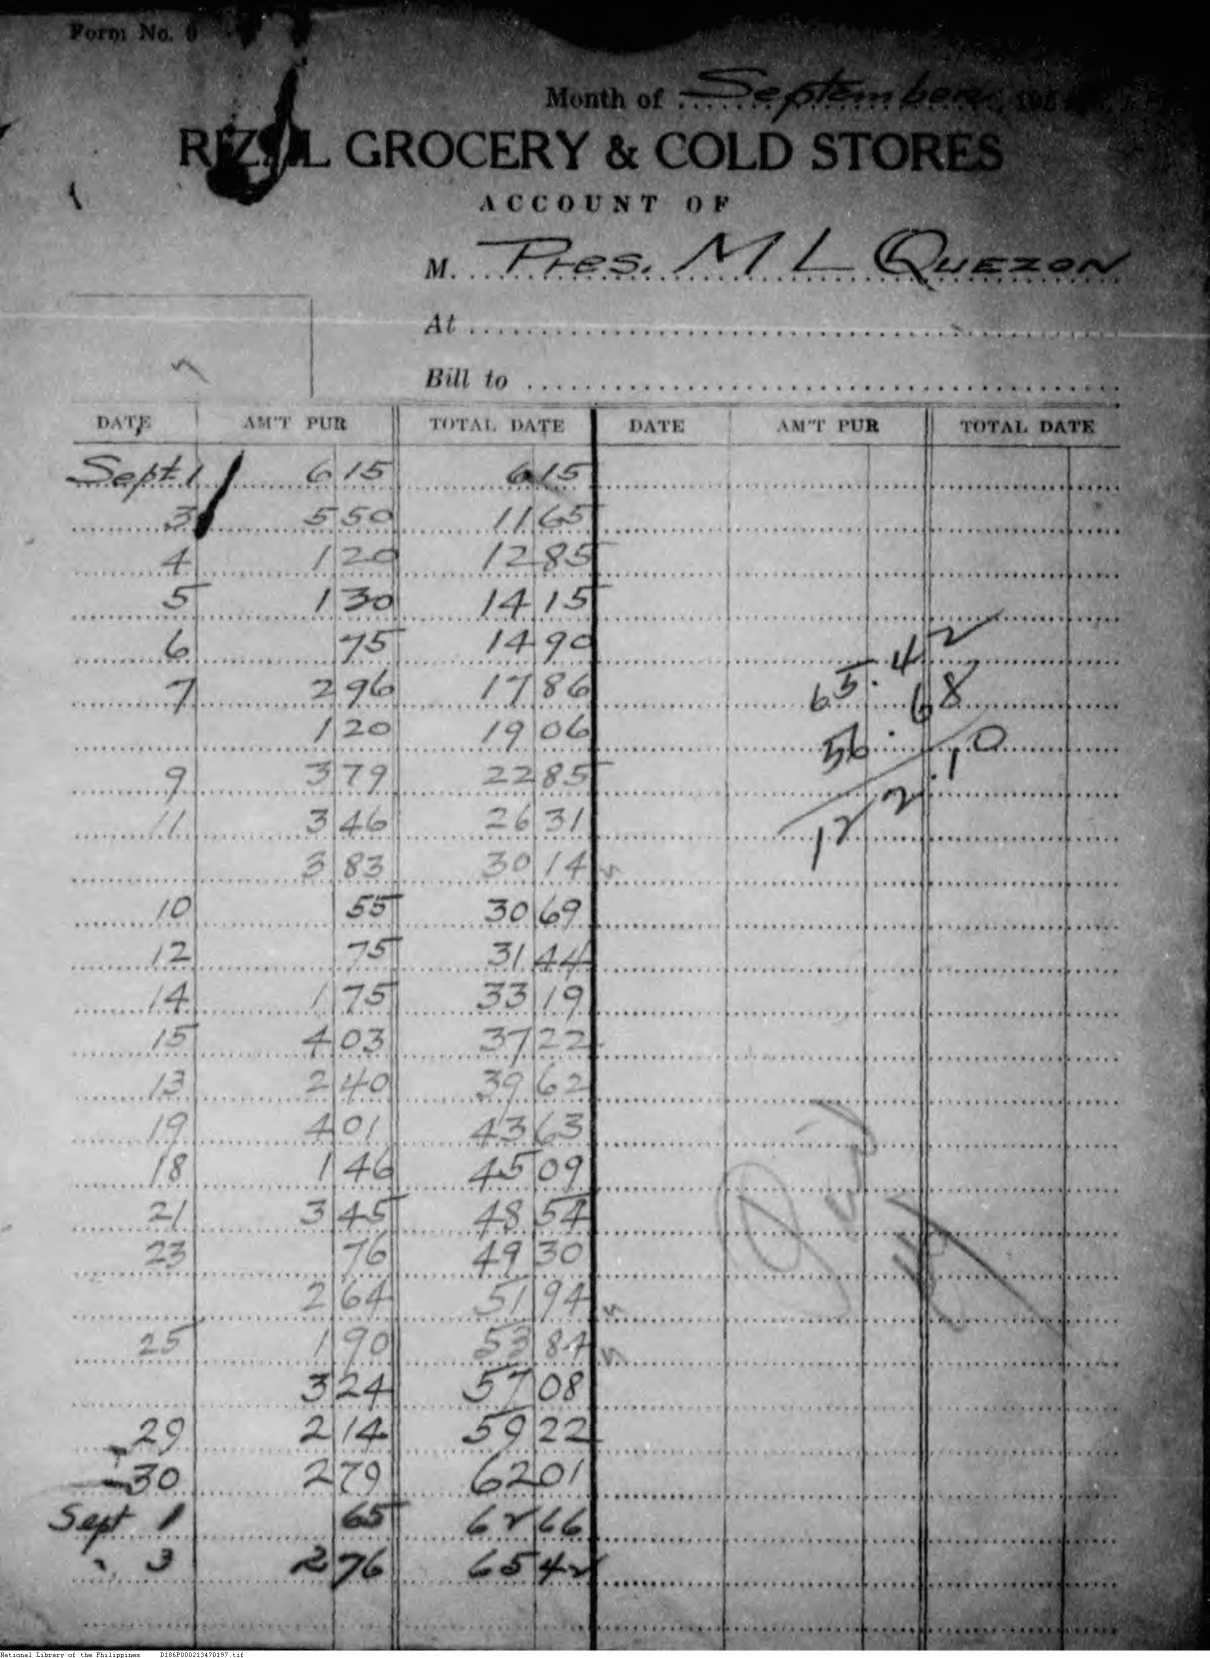 Form No.
Month of September 193
RIZAL GROCERY & COLD STORES
ACCOUNT OF
M. Pres. M L QUEZON
At
Bill to
DATE AM'T PUR TOTAL DATE DATE AM'T PUR TOTAL DATE
Sept 1 6 15 6 15
3 5 50 11 65
4 1 20 12 85
5 1 30 14 15
6 75 14 90
7 2 96 17 86
1 20 19 06
9 3 79 22 85
11 3 46 26 31
3 83 30 14
10 55 30 69
12 75 31 44
14 1 75 33 19
15 4 03 37 22
13 2 40 39 62
19 4 01 43 63
18 1 46 45 09
21 3 45 48 54
23 76 49 30
2 64 51 94
25 1 90 53 84
3 24 57 08
29 2 14 59 22
30 2 79 62 01
Sept 1 65 62 66
" 3 2 76 65 42
65.42
56.68
122.10
National Library of the Philippines D186P000213470197.tif